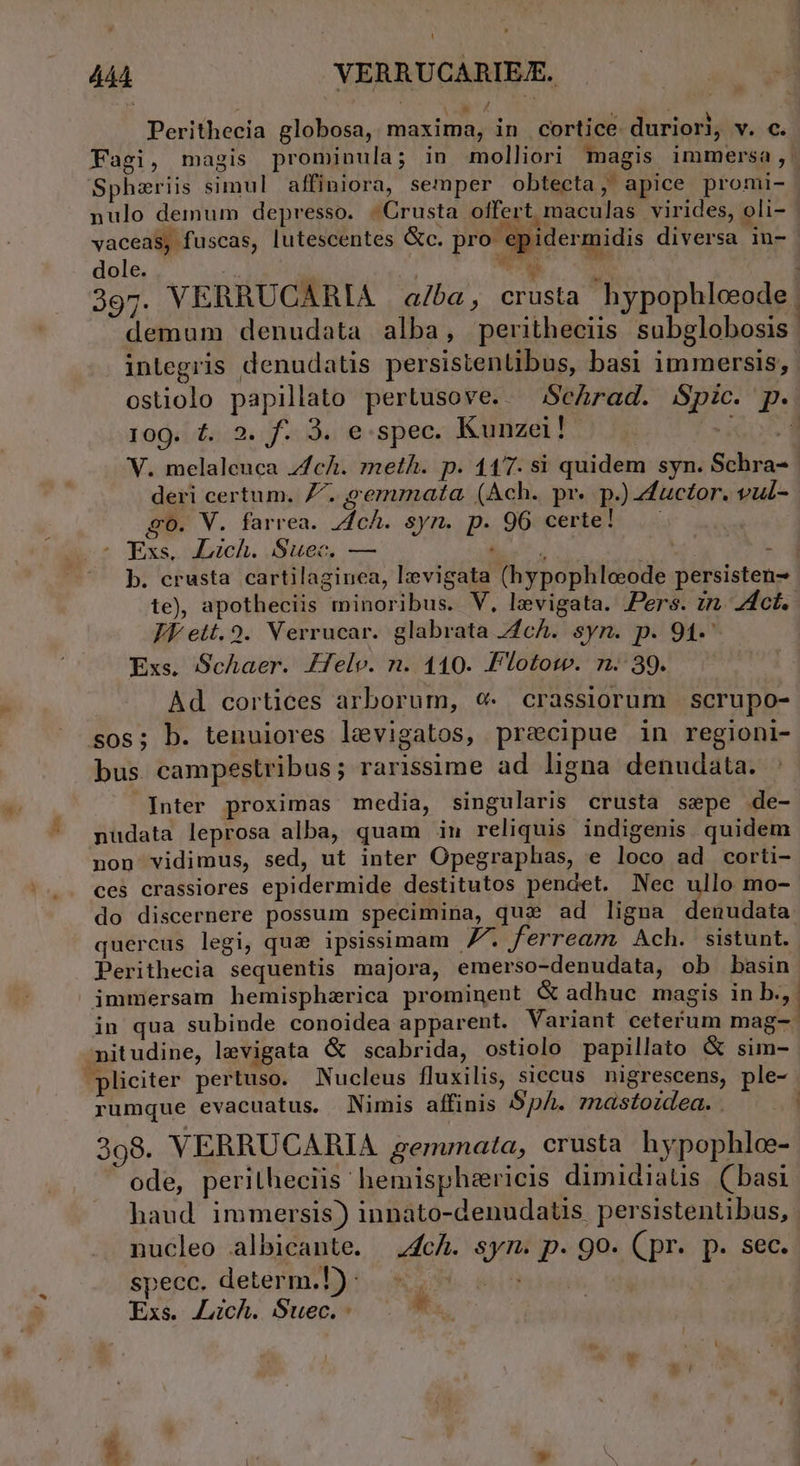 444 VERRUCARIEÆ.
Perithecia globosa, maxima, in cortice duriori, v. c.
Fagi, magis prominula; in molliori magis immersa,
Sphæriis simul affiniora, semper obtecta, apice promi-
nulo demum depresso. Crusta offert maculas virides, oli-
vaceas, fuscas, lutescentes &c. pro epidermidis diversa in-
dole.
397. VERRUCARIA alba, crusta hypophlœode
demum denudata alba, peritheciis subglobosis
integris denudatis persistentibus, basi immersis,
ostiolo papillato pertusove. Schrad. Spic. p.
109. t. 2. f. 3. e spec. Kunzei!
V. melaleuca Ach. meth. p. 117. si quidem syn. Schra-
deri certum. V. gemmata (Ach. pr. p.) Auctor. vul-
go. V. farrea. Ach. syn. p. 96 certe!
Exs. Lich. Suec. —
b. crusta cartilaginea, lævigata (hypophlœode persisten-
te), apotheciis minoribus. V. lævigata. Pers. in Act.
Wett. 2. Verrucar. glabrata Ach. syn. p. 91.
Exs. Schaer. Helv. n. 110. Flotow. n. 39.
Ad cortices arborum, α. crassiorum scrupo-
sos; b. tenuiores lævigatos, præcipue in regioni-
bus campestribus; rarissime ad ligna denudata.
Inter proximas media, singularis crusta sæpe de-
nudata leprosa alba, quam in reliquis indigenis quidem
non vidimus, sed, ut inter Opegraphas, e loco ad corti-
ces crassiores epidermide destitutos pendet. Nec ullo mo-
do discernere possum specimina, quæ ad ligna denudata
quercus legi, quæ ipsissimam V. ferream Ach. sistunt.
Perithecia sequentis majora, emerso-denudata, ob basin
immersam hemisphærica prominent & adhuc magis in b.,
in qua subinde conoidea apparent. Variant ceterum mag-
nitudine, lævigata & scabrida, ostiolo papillato & sim-
pliciter pertuso. Nucleus fluxilis, siccus nigrescens, ple-
rumque evacuatus. Nimis affinis Sph. mastoidea.
398. VERRUCARIA gemmata, crusta hypophlœ-
ode, peritheciis hemisphæricis dimidiatis (basi
haud immersis) innato-denudatis persistentibus,
nucleo albicante. Ach. syn. p. 90. (pr. p. sec.
specc. determ.!)
Exs. Lich. Suec.